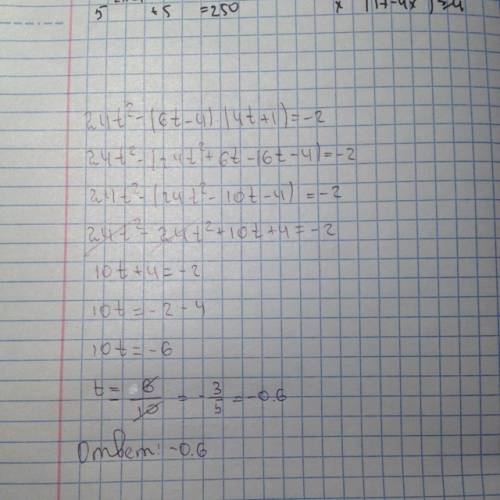 5 + 5 = 250
24t² - (6t-4)(4t+1) = -2
24t² - (24t² + 6t - 16t - 4) = -2
24t² - (24t² - 10t - 4) = -2
24t² - 24t² + 10t + 4 = -2
10t + 4 = -2
10t = -2 - 4
10t = -6
t = 6/10 = -3/5 = -0.6
Ответ: -0.6